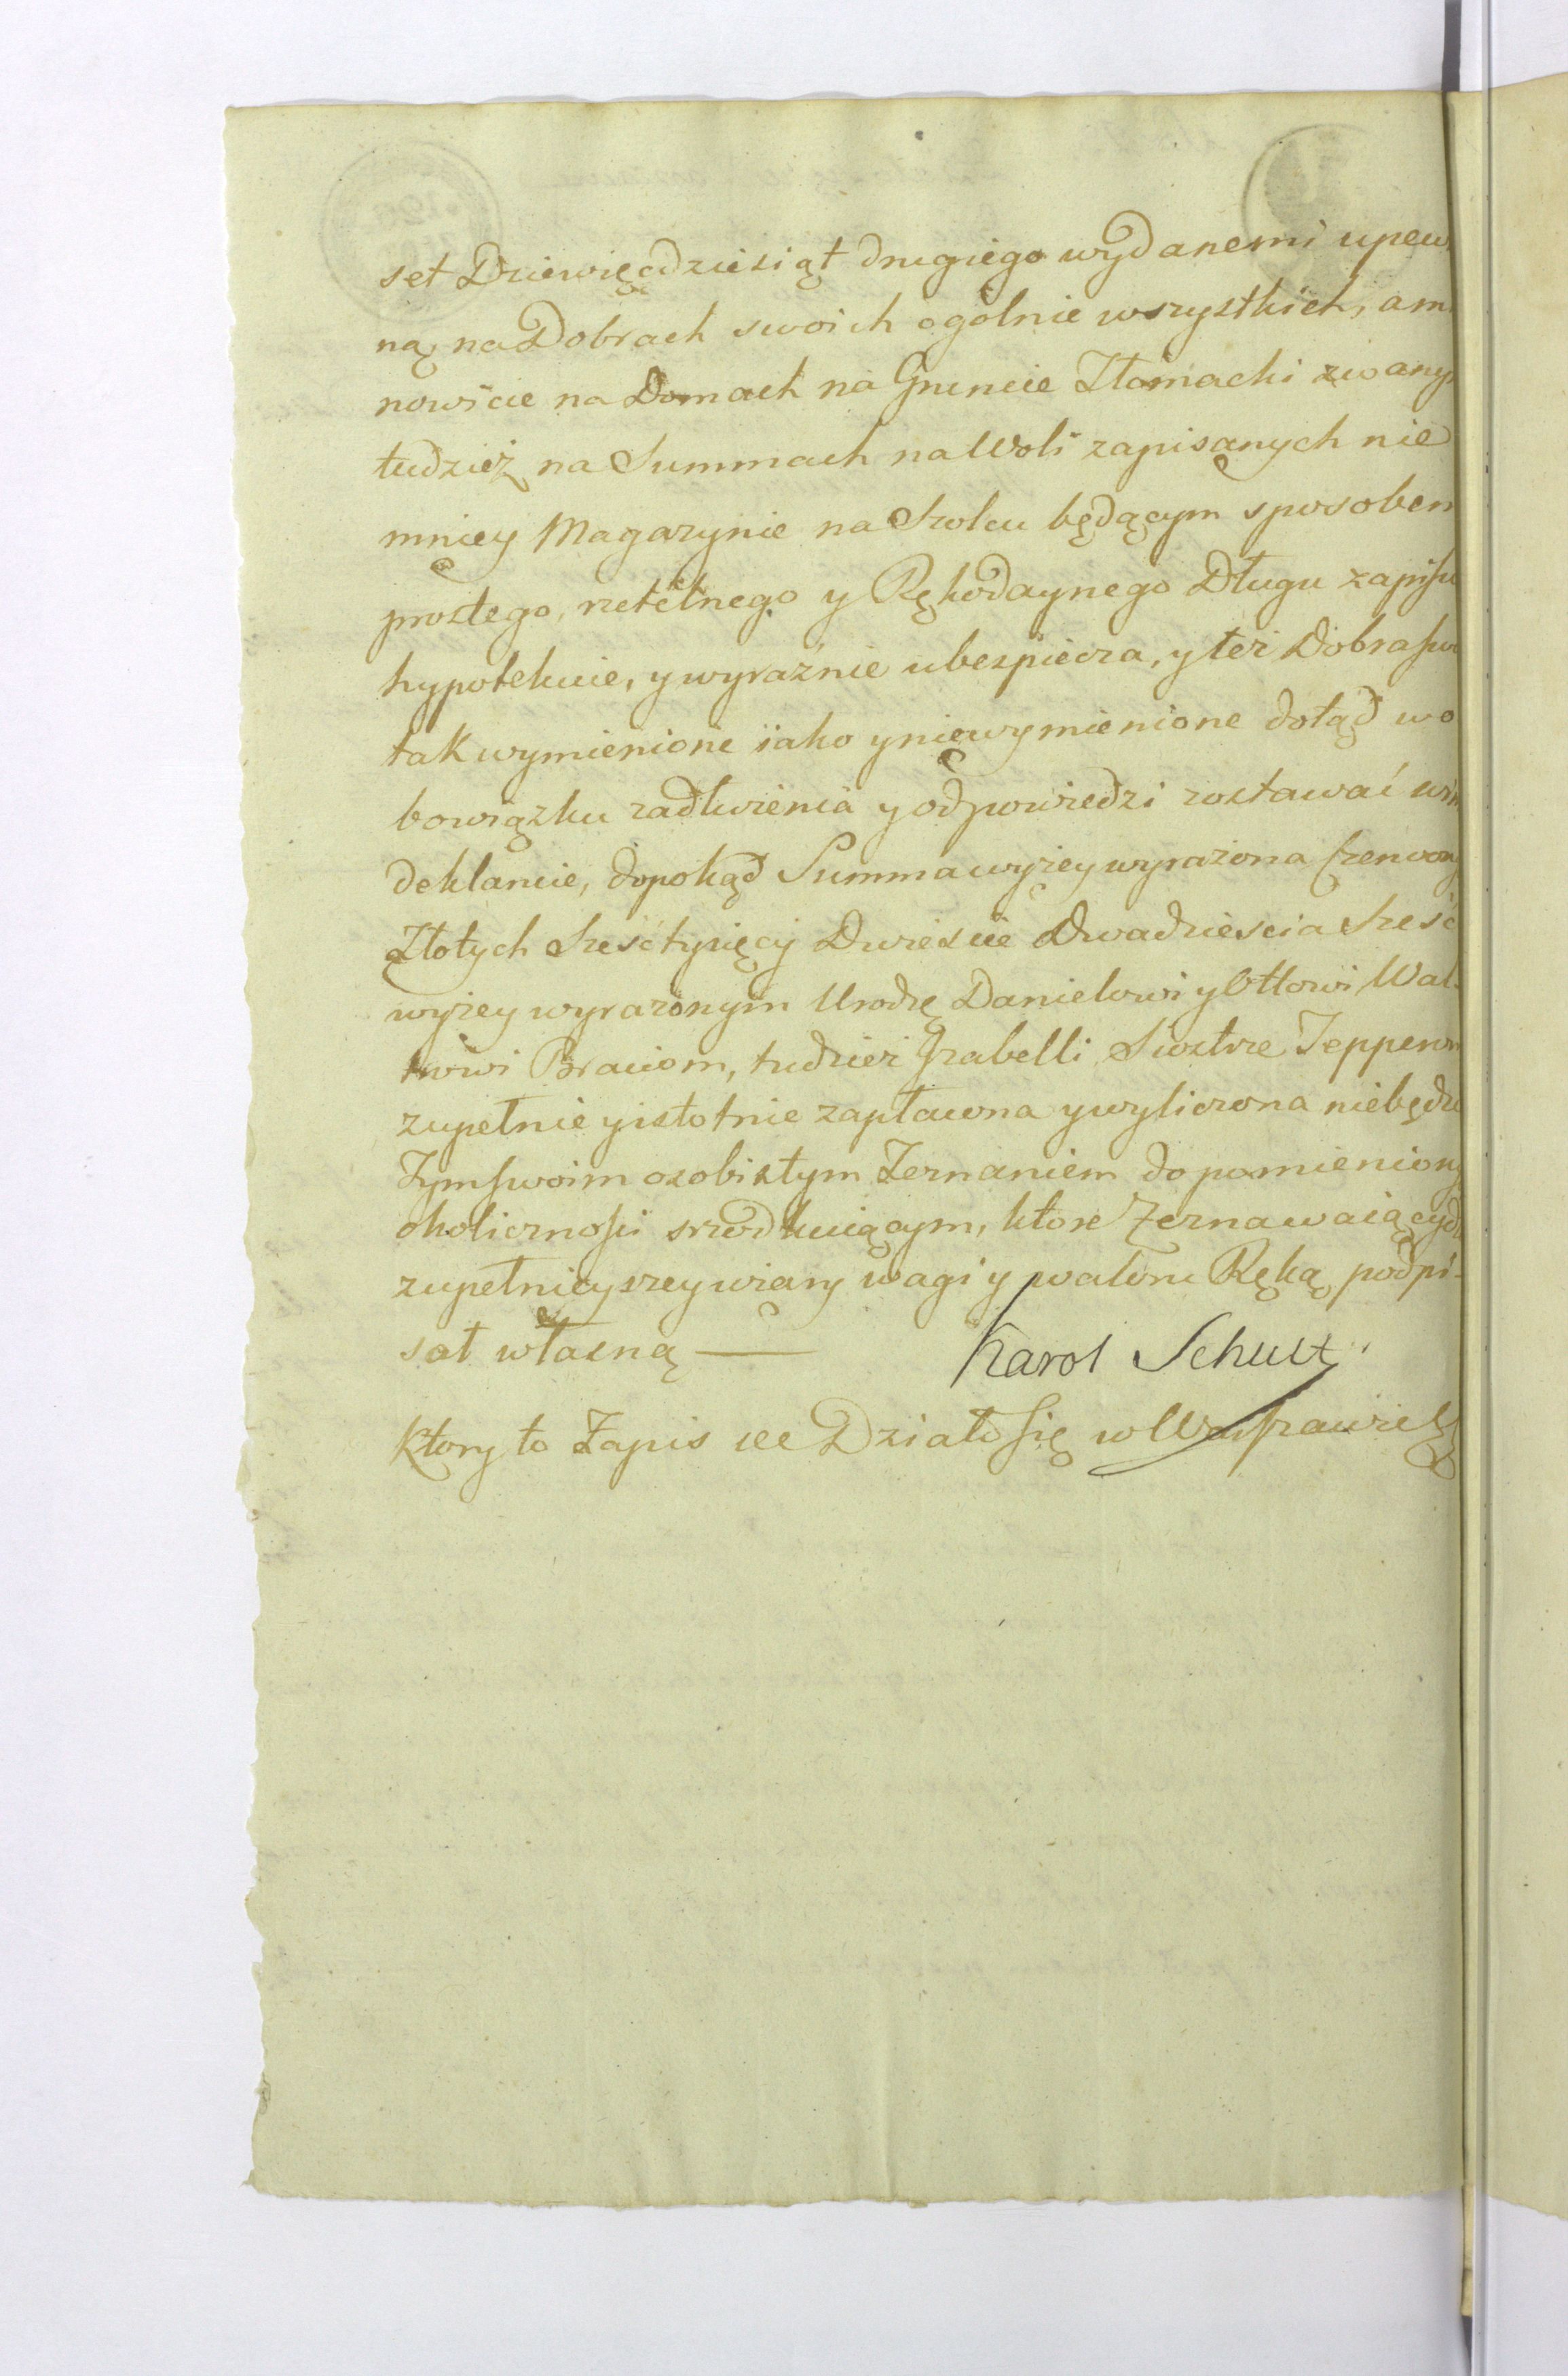 set Dziewięcdziesiąt drugiego wydanemi upew
ną na Dobrach swoich ogólnie wszystkich, a mi
nowicie na Domach na Gruncie Tłomacki zwany
tudzież na Summach na Woli zapisanych nie
mniey Magazynie na Szolcu będącym sposobem
prostego, rzetelnego y Rękodaynego Długu zapisu
hypotekuie, y wyraźnie ubespiecza, y też Dobra swe
tak wymienione iako y niewymienione dotąd w o
bowiązku zadłużenia y odpowiedzi zostawać win
deklaruie, dopokąd Summa wyżey wyrażona Czerwony
Złotych Sześć tysięcy Dwieście Dwadzieścia Sześć
wyżey wyrażonym Urodzę Danielowi y Ottowi Wal-
Braciom, tudzież Izabelli Siostrze Tepperom
zupełnie y istotnie zapłacona y wyliczona niebędzie
Tym swoim osobistym Zeznaniem do pomieniony
okoliczności srzodkuiącym, ktore Zeznawaiący dl
zupełnieyszey wiary wagi y waloru Ręką podpi-
sał własną —
Karol Schultz
Ktory to Zapis Dział Się w Warszawie